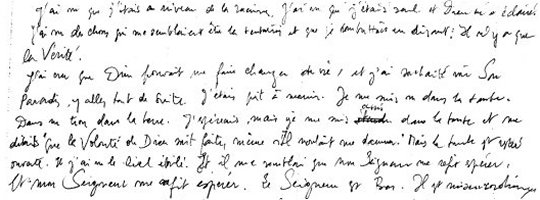 j'ai vu que j'étais au niveau de la racine. J'ai vu que j'étais seul et Dieu m'a éclairé
j'ai vu des choses qui me semblaient être la tentation et que je combattais en disant: Il n'y a que
la Vérité.
J'ai cru que Dieu pouvait me faire changer de vie, et j'ai souhaité voir Son
Paradis, y aller tout de suite. J'étais prêt à mourir. Je me mis nu dans la tombe.
Dans un trou dans la terre. J'espérais, mais je me mis dans la tombe et me
disais que la Volonté de Dieu soit faite, même s'Il voulait me damner! Mais la tombe est restée
ouverte. Et j'ai vu le ciel étoilé. Et il me semblait que mon Seigneur me refit espérer.
Et mon Seigneur me refit espérer. Le Seigneur est Bon. Il est miséricordieux